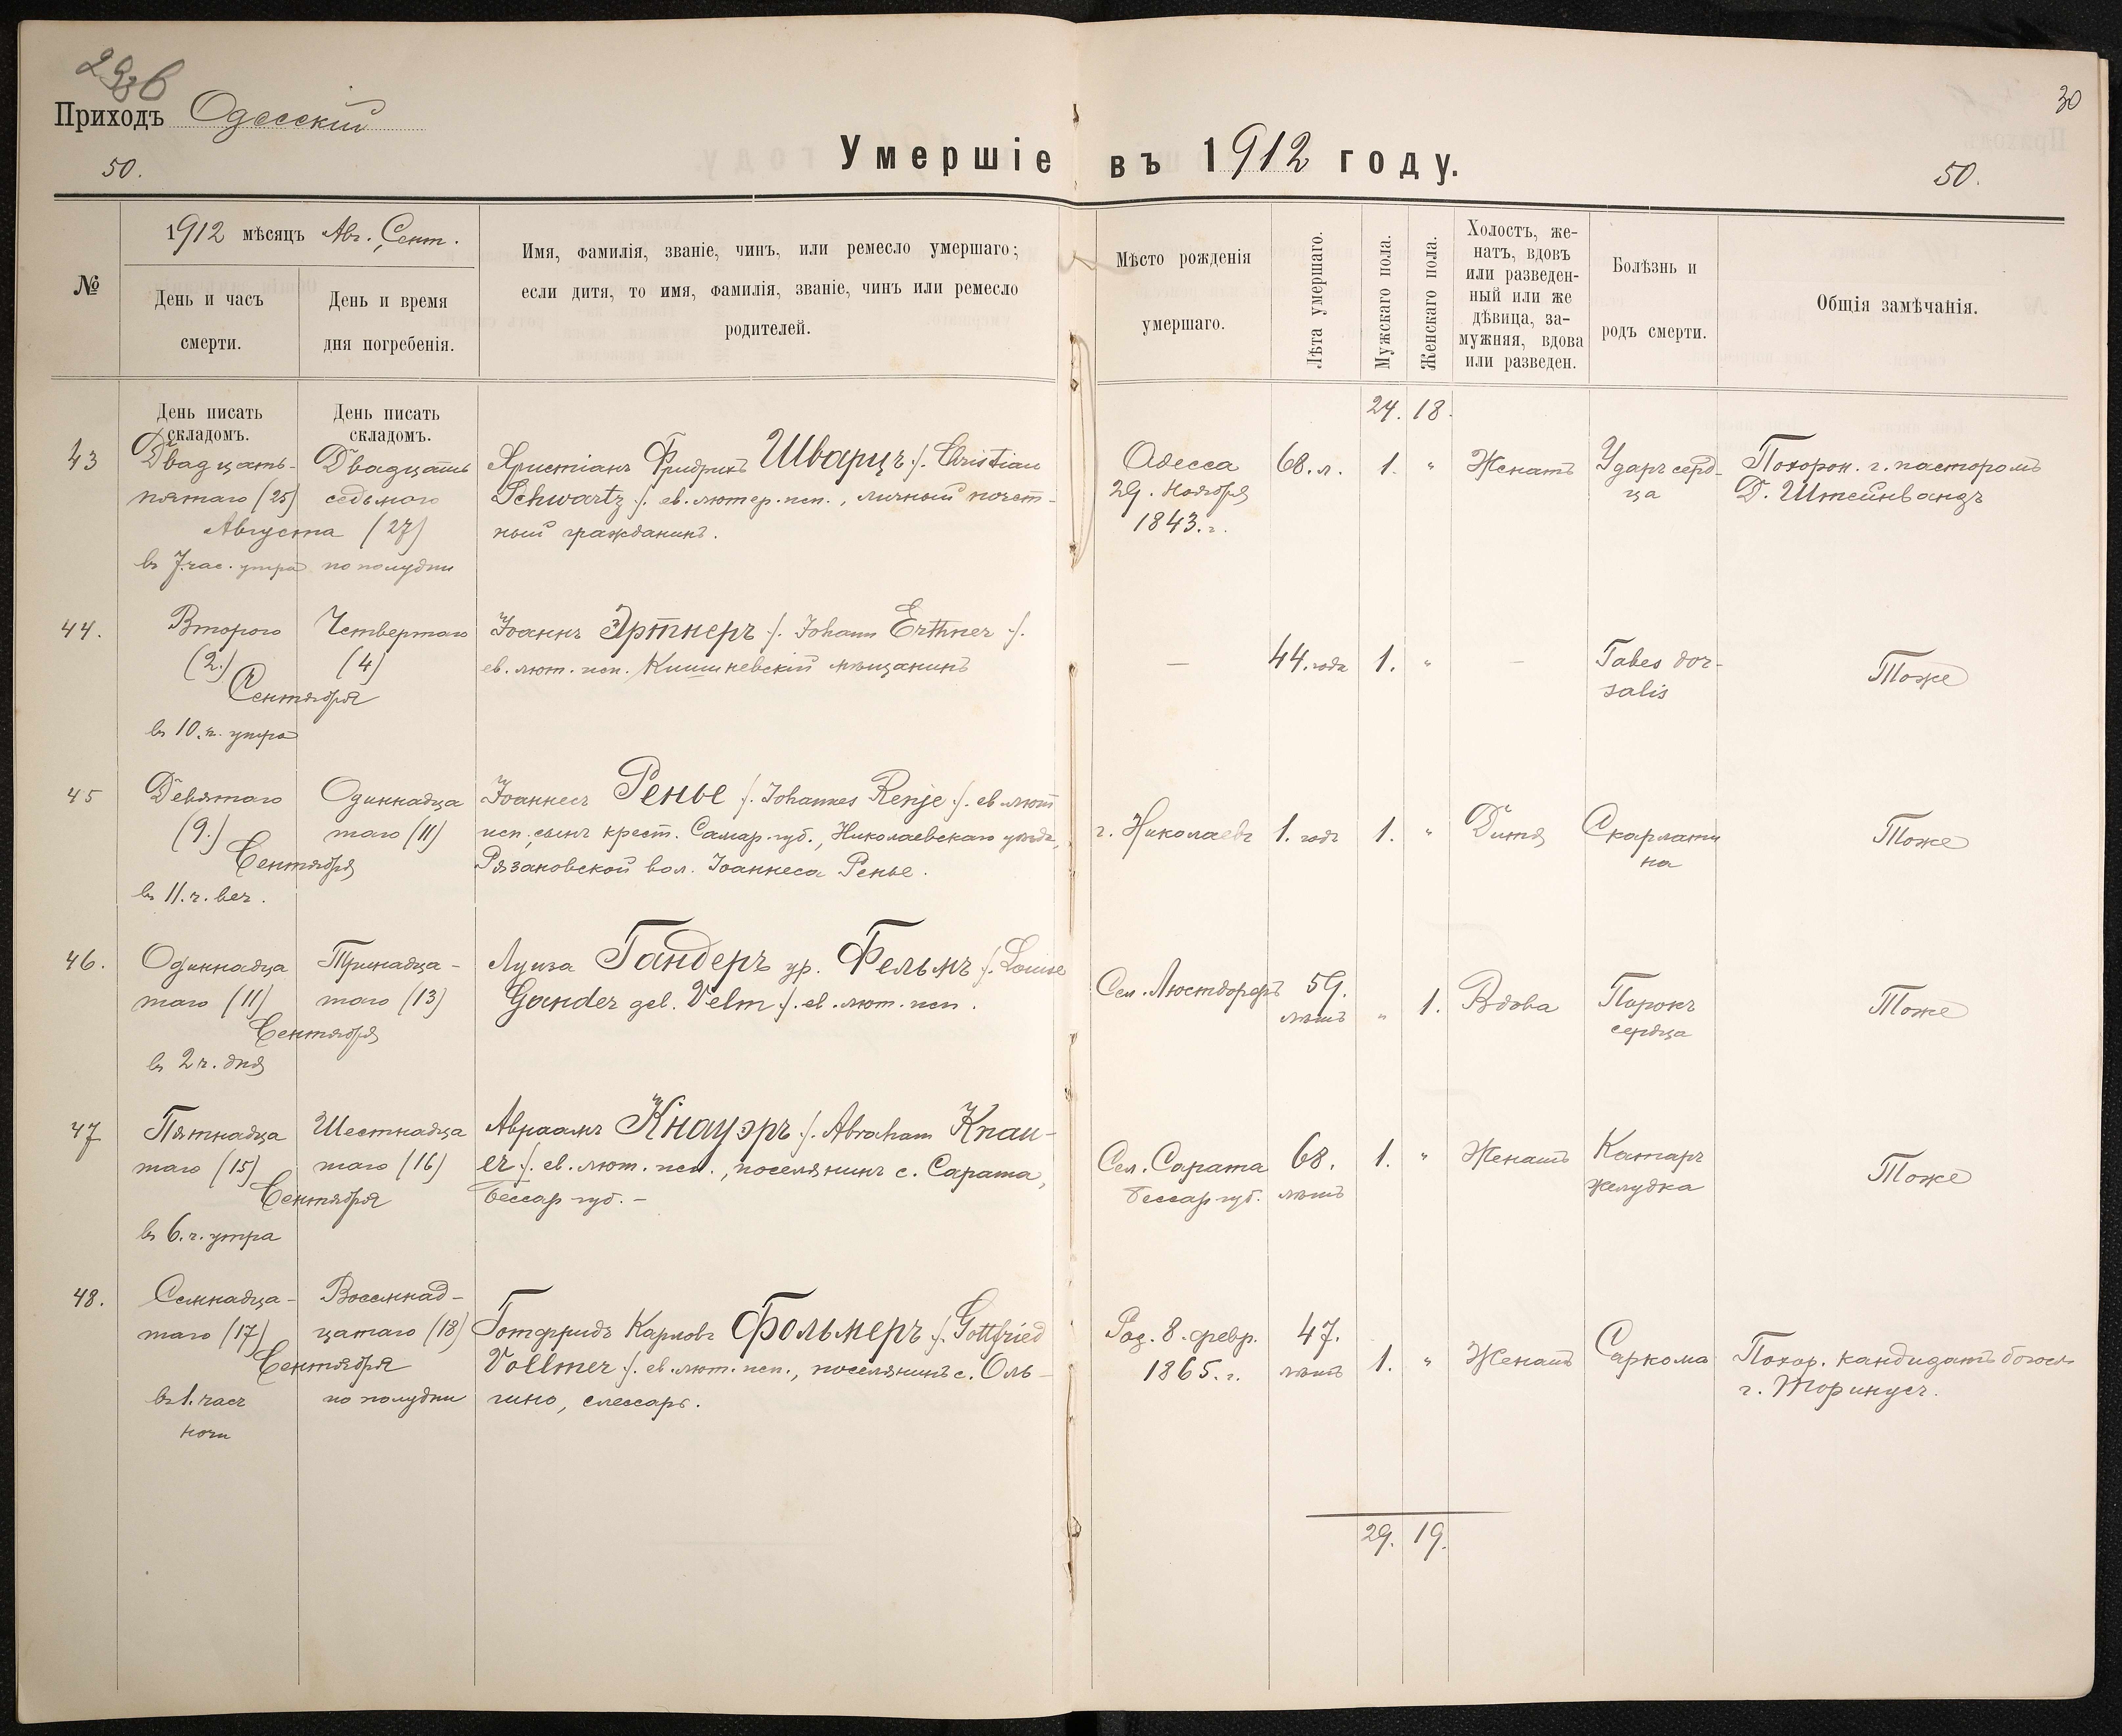 Приходъ Одесскій
30
50.
Умершіе въ 1912 году.
50.
№
1912 мѣсяцъ Авг. Сент.
День и часъ
смерти.
День и время
дня погребенія.
Имя, фамилія, званіе, чинъ, или ремесло умершаго;
если дитя, то имя, фамилія, званіе, чинъ или ремесло
родителей.
Мѣсто рожденія
умершаго.
Лѣта умершаго.
Мужскаго пола.
Женскаго пола.
Холостъ, же-
натъ, вдовъ
или разведен-
ный или же
дѣвица, за-
мужняя, вдова
или разведен.
Болѣзнь и
родъ смерти.
Общія замѣчанія.
День писать
складомъ.
День писать
складомъ.
24. 18.
43
Двадцать-
пятаго (25)
Августа
въ 7 час. утра
Двадцать
седьмого
(27)
по полудни
Христіанъ Фридрихъ Шварцъ /. Christian
Schwartz /. ев. лютер. исп., личный почет-
ный гражданинъ.
Одесса
29. Ноября
1843. г.
68. л.
1.
"
Женатъ
Ударъ серд-
ца
Похорон. г. пасторомъ
Д. Штейнвандъ
44.
Второго
(2.)
Сентября
въ 10. ч. утра
Четвертаго
(4)
Іоаннъ Эртнеръ /. Johann Erthner /.
ев. лют. исп. Кишиневскій мѣщанинъ
—
44. года
1.
"
—
Tabes dor-
salis
Тоже
45
Девятаго
(9.)
Сентября
въ 11. ч. веч.
Одиннадца
таго (11)
Іоаннесъ Ренье /. Johannes Renje /. ев лют
исп., сынъ крест. Самар. губ., Николаевскаго уѣзда,
Рязановской вол. Іоаннеса Ренье.
г. Николаевъ
1. годъ
1.
"
Дитя
Скарлати
на
Тоже
46.
Одиннадца
таго (11)
Сентября
въ 2 ч. дня
Тринадца-
таго (13)
Луиза Гандеръ ур. Фельмъ /. Louise
Gander geb. Velm /. ев. лют. исп.
Сел. Люстдорфъ
59.
лѣтъ
"
1.
Вдова
Порокъ
сердца
Тоже
47
Пятнадца
таго (15)
Сентября
въ 6. ч. утра
Шестнадца
таго (16)
Авраамъ Кнауэръ /. Abraham Knau-
er /. ев. лют. исп., поселянинъ с. Сарата,
Бессар губ. -
Сел. Сарата
Бессар губ.
68.
лѣтъ
1.
"
Женатъ
Катаръ
желудка
Тоже
48.
Семнадца-
таго (17)
Сентября
въ 1. часъ
ночи
Восемнад-
цатаго (18)
по полудни
Готфридъ Карловъ Фольмеръ /. Gottfried
Vollmer /. ев. лют. исп., поселянинъ с. Оль-
гино, слесарь.
Род. 8. февр.
1865. г.
47.
лѣтъ
1.
"
Женатъ
Саркома
Похор. кандидатъ богосл
г.
29. 19.